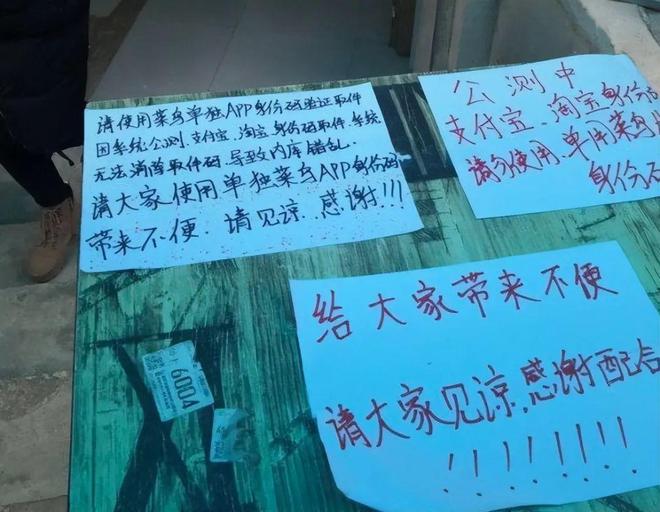 请使用菜鸟单独APP身份码验证取件
因系统公测.支付宝、淘宝.身份码取件.系统
无法消除取件码.导致内库错乱.
请大家使用单独菜鸟APP身份码
带来不便.请见谅..感谢!!!
公测中
支付宝、淘宝身份码
请勿使用.单用菜鸟
身份码
给大家带来不便
请大家见谅.感谢配合
!!!!!!!
6004